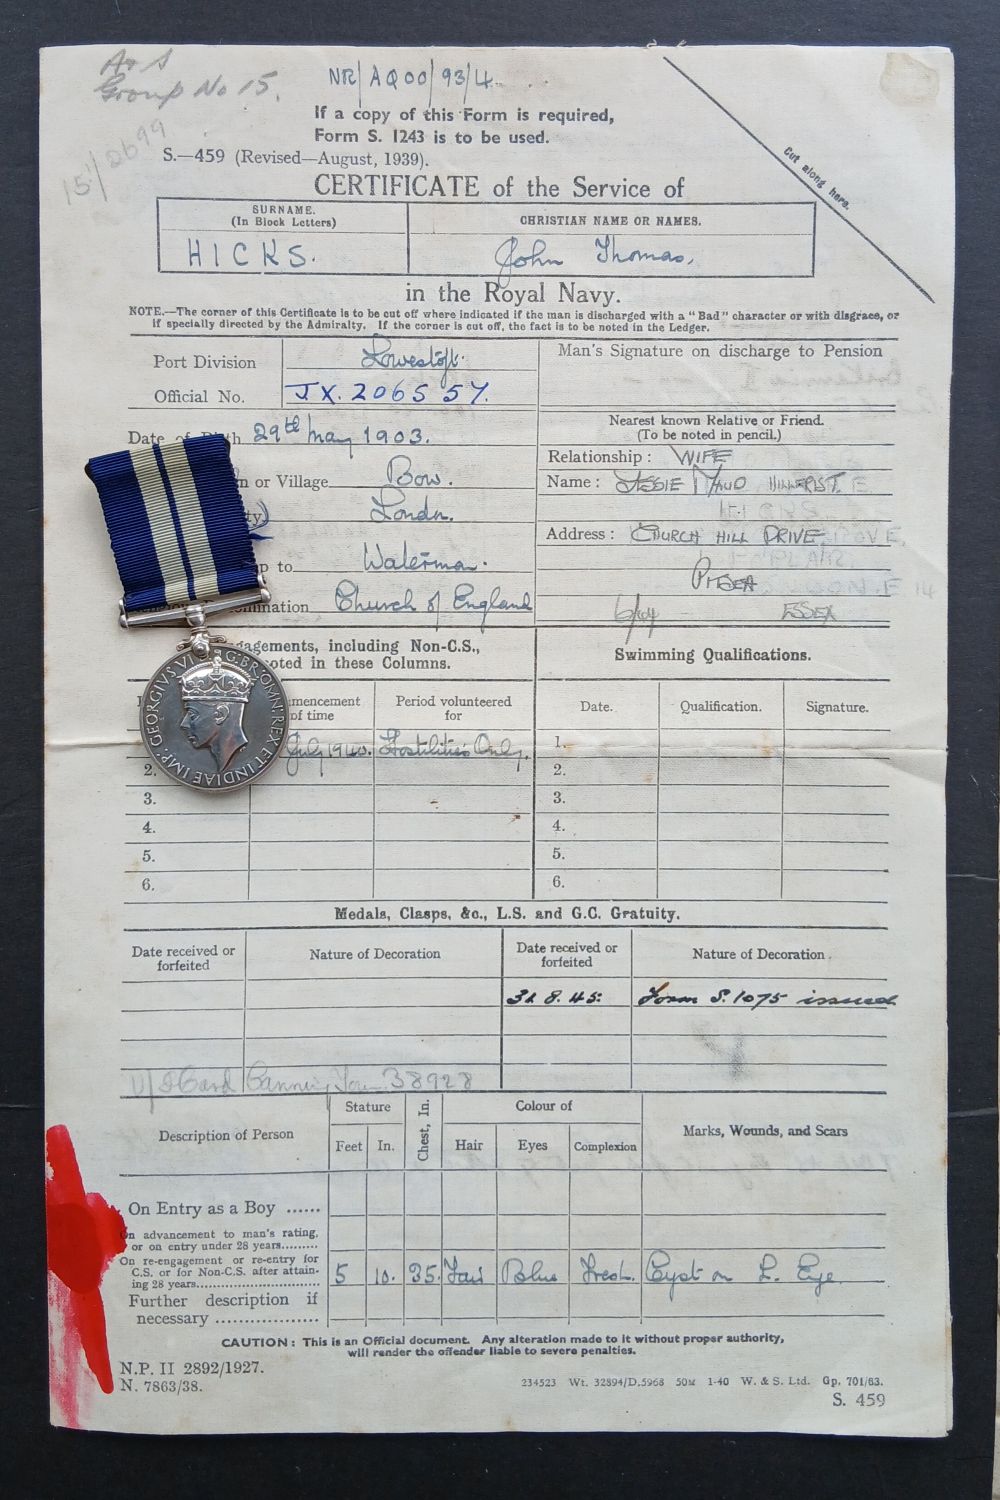 A & S
Group No 15.
NR/AQ00/93/4
15/2699
If a copy of this Form is required,
Form S. 1243 is to be used.
S.—459 (Revised—August, 1939).
Cut along here.
CERTIFICATE of the Service of
SURNAME.
(In Block Letters)
CHRISTIAN NAME OR NAMES.
HICKS.
John Thomas.
in the Royal Navy.
NOTE.—The corner of this Certificate is to be cut off where indicated if the man is discharged with a "Bad" character or with disgrace, or
if specially directed by the Admiralty. If the corner is cut off, the fact is to be noted in the Ledger.
Port Division Lowestoft.
Official No. JX.206557.
Man's Signature on discharge to Pension
Date of Birth 29th May 1903.
n or Village Bow.
ty) London.
p to Waterman.
mination Church of England
Nearest known Relative or Friend.
(To be noted in pencil.)
Relationship : WIFE
Name : JESSIE MAUD
Address : CHURCH HILL DRIVE
PITSEA
6/44 ESSEX
gagements, including Non-C.S.,
oted in these Columns.
Swimming Qualifications.
mencement
of time
Period volunteered
for
Date.
Qualification.
Signature.
July 1940. Hostilities Only.
1.
2.
2.
3.
3.
4.
4.
5.
5.
6.
6.
GEORGIVS VI G:BR:OMN:REX ET INDIAE IMP:
Medals, Clasps, &c., L.S. and G.C. Gratuity.
Date received or
forfeited
Nature of Decoration
Date received or
forfeited
Nature of Decoration
31.8.45. Form S.1075 issued
U/I Card Canning Town 38928
Description of Person
Stature
Feet
In.
Chest, In.
Colour of
Hair
Eyes
Complexion
Marks, Wounds, and Scars
On Entry as a Boy ......
On advancement to man's rating,
or on entry under 28 years.........
On re-engagement or re-entry for
C.S. or for Non-C.S. after attain-
ing 28 years..............................
5 10. 35. Fair Blue Fresh. Cyst on L. Eye
Further description if
necessary ..................
CAUTION : This is an Official document. Any alteration made to it without proper authority,
will render the offender liable to severe penalties.
N.P. II 2892/1927.
N. 7863/38.
234523 Wt. 32894/D.5968 50M 1-40 W. & S. Ltd. Gp. 701/63.
S. 459